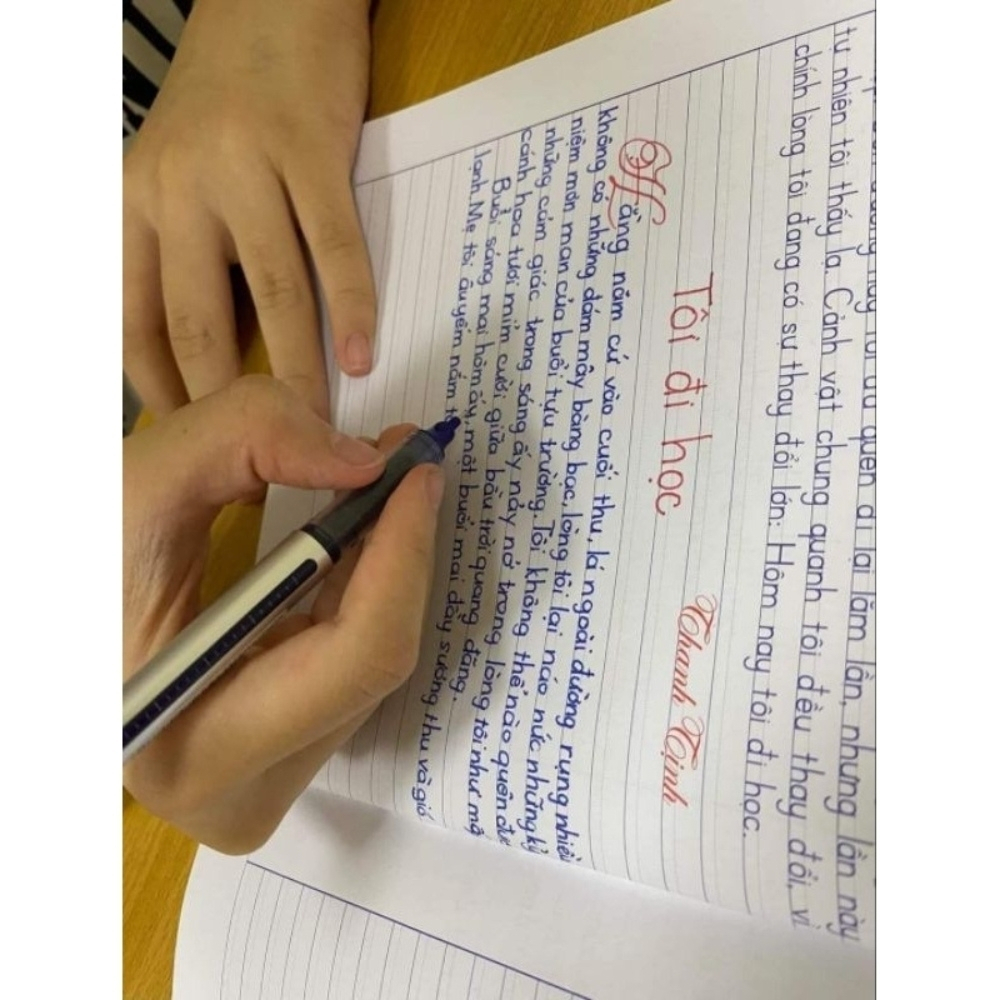 tự nhiên tôi thấy lạ. Cảnh vật chung quanh tôi đều thay đổi, vì
chính lòng tôi đang có sự thay đổi lớn: Hôm nay tôi đi học.
Tôi đi học
Thanh Tịnh
Hằng năm cứ vào cuối thu, lá ngoài đường rụng nhiều
không có những đám mây bàng bạc, lòng tôi lại náo nức những kỷ
niệm mơn man của buổi tựu trường. Tôi không thể nào quên đư
những cảm giác trong sáng ấy nảy nở trong lòng tôi như mộ
cánh hoa tươi mỉm cười giữa bầu trời quang đãng.
Buổi sáng mai hôm ấy, một buổi mai đầy sương thu và gió
lạnh. Mẹ tôi âu yếm nắm t